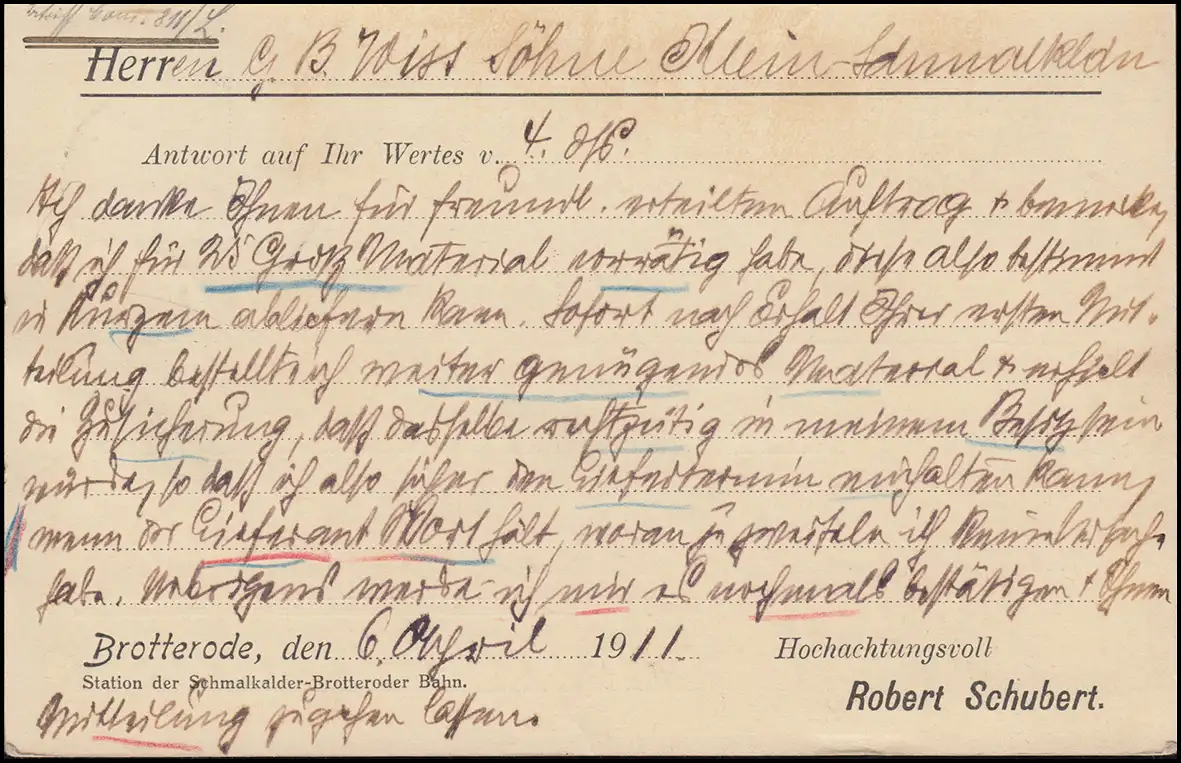 Betrifft Com. 211/L.
Herren G. B. Wiss Söhne Klein-Schmalkalden
Antwort auf Ihr Wertes v. 4. ds.
Ich danke Ihnen für freundl. erteilten Auftrag & bemerke,
daß ich für 25 Groß Material vorrätig habe, diese also bestimmt
in Kürzem abliefern kann. Sofort nach Erhalt Ihrer ersten Mit-
teilung bestellte ich weiter genügendes Material & erhielt
die Zusicherung, daß dasselbe rechtzeitig in meinem Besitz sein
würde, so daß ich also sicher den Liefertermin einhalten kann,
wenn der Lieferant Wort hält, woran zu zweifeln ich keine Ursache
habe. Uebrigens werde ich mir es nochmals bestätigen & Ihnen
Brotterode, den 6. April 1911. Hochachtungsvoll
Station der Schmalkalder-Brotteroder Bahn.
Robert Schubert.
Mitteilung zugehen lassen.